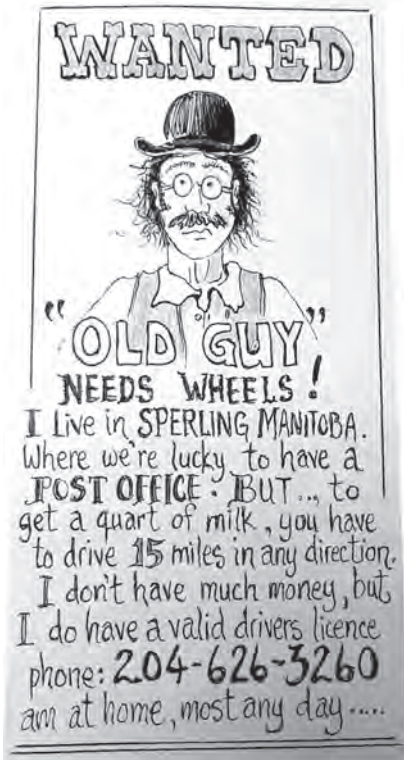 WANTED
"OLD GUY"
NEEDS WHEELS!
I Live in SPERLING MANITOBA.
Where we're lucky to have a
POST OFFICE. BUT... to
get a quart of milk, you have
to drive 15 miles in any direction.
I don't have much money, but
I do have a valid drivers licence
phone: 204-626-3260
am at home, most any day.....